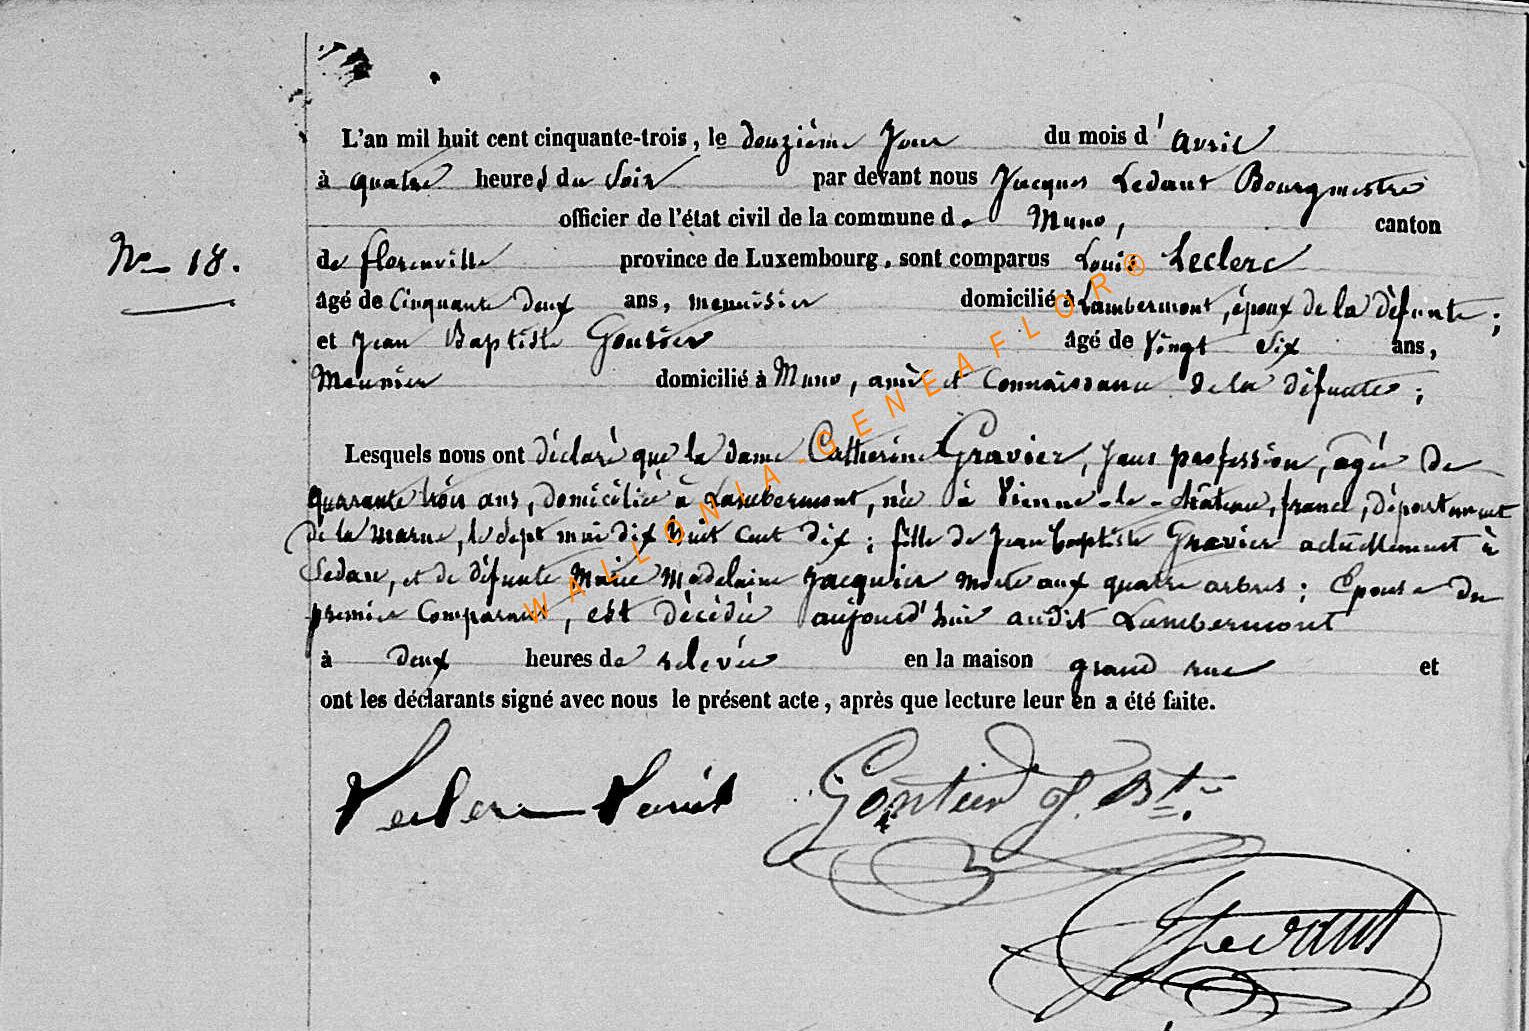 L'an mil huit cent cinquante-trois, le douzième Jour du mois d'avril
à quatre heures du Soir par devant nous Jacques Ledant Bourgmestre
officier de l'état civil de la commune de Muno, canton
No 18.
de florenville province de Luxembourg, sont comparus Louis Leclerc
âgé de Cinquante deux ans, menuisier domicilié à Lambermont, époux de la défunte;
et Jean Baptiste Gontier âgé de Vingt Six ans,
Meunier domicilié à Muno, ami et Connaissance de la défunte;
Lesquels nous ont déclaré que la dame Catherine Gravier, Sans profession, agée de
quarante trois ans, domiciliée à Lambermont, née à Vienne-le-château, france, département
de la marne, le sept mai dix huit Cent dix; fille de Jean baptiste Gravier actuellement à
Sedan, et de défunte Marie Madelaine Jacquier morte aux quatre arbres; Epouse du
premier Comparant, est décédée aujourd'hui audit Lambermont
à deux heures de relevée en la maison grand rue et
ont les déclarants signé avec nous le présent acte, après que lecture leur en a été faite.
Leclerc Louis Gontier J. Bte.
JLedant
WALLONIA-GENEAFLOR®